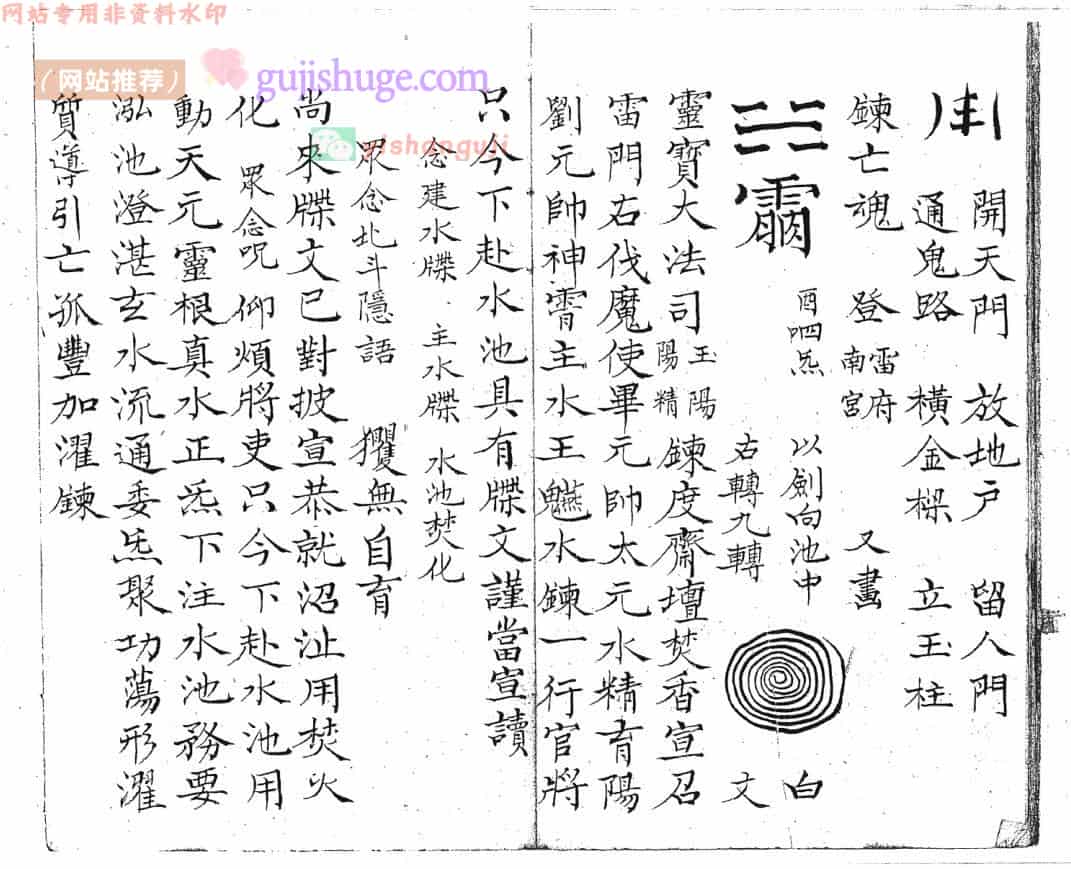 网站专用非资料水印
（网站推荐）
gujishuge.com
開天門 放地户 留人門
通鬼路 橫金樑 立玉柱
鍊亡魂 登雷府南宮 又畫
酉呬炁 以劍向池中
右轉九轉
白文
靈寶大法司玉陽陽精鍊度齋壇焚香宣召
雷門右伐魔使畢元帥太元水精育陽
劉元帥神霄主水王水鍊一行官將
只今下赴水池具有牒文謹當宣讀
念建水牒 主水牒 水池焚化
眾念北斗隱語 玃無自育
尚來牒文已對披宣恭就沼沚用焚火
化 眾念呪 仰煩將吏只今下赴水池用
動天元靈根真水正炁下注水池務要
泓池澄湛玄水流通委炁聚功蕩形濯
質導引亡孤豐加濯鍊